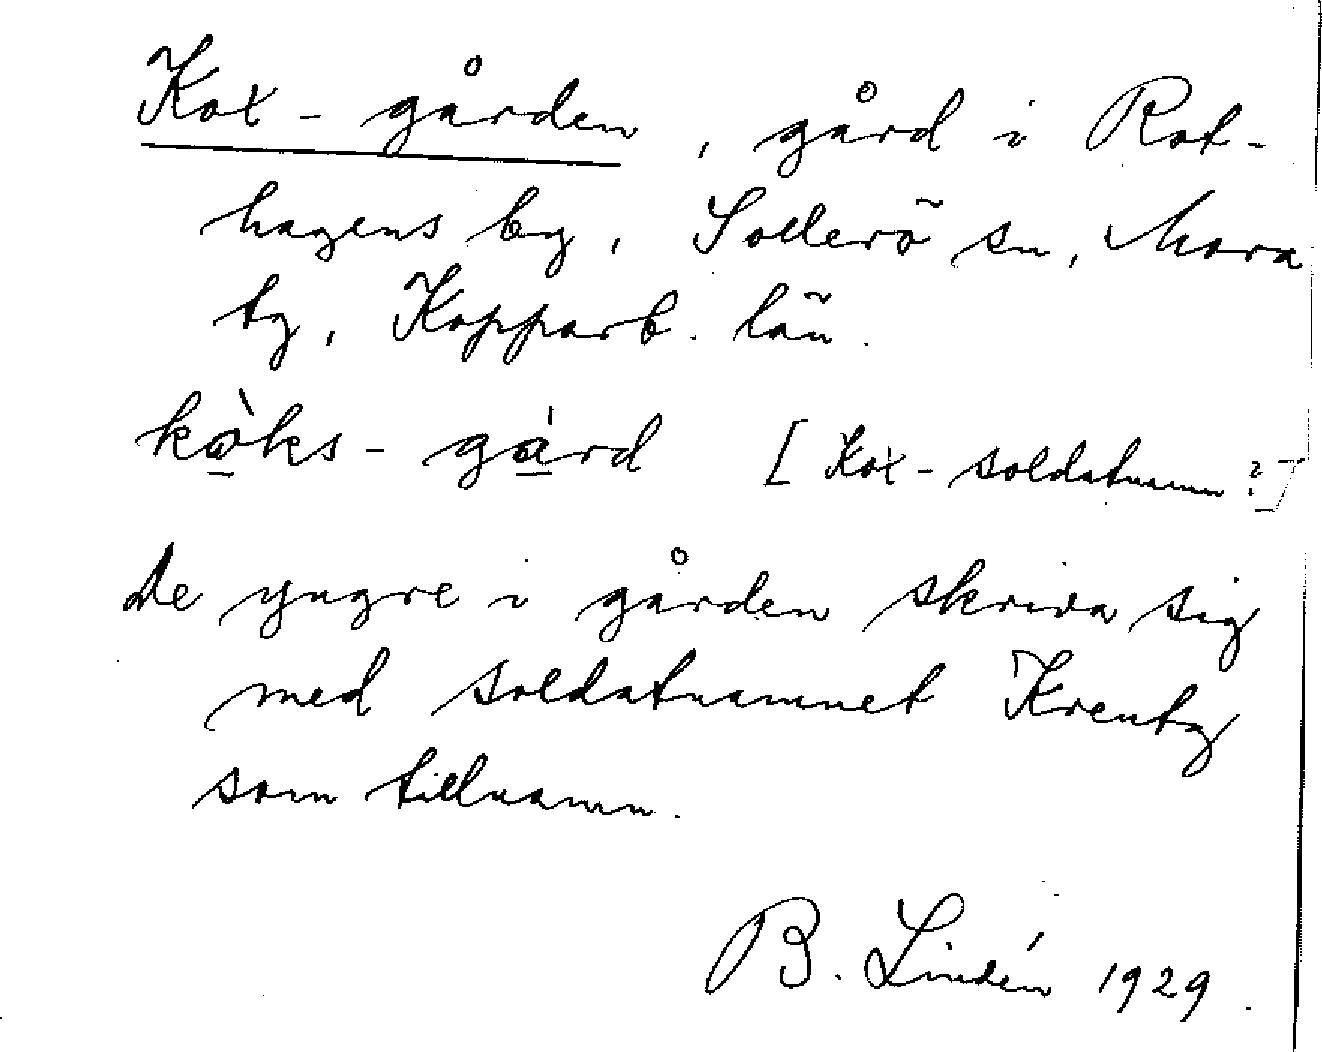 Kox - gården, gård i Rot-
hagens by, Sollerö sn, Mora
tg, Kopparb. län.
kò̠ks - gá̠rd [Kox - soldatnamn?]
De yngre i gården skriva sig
med soldatnamnet Kreutz
som tillnamn.
B. Lindén 1929.